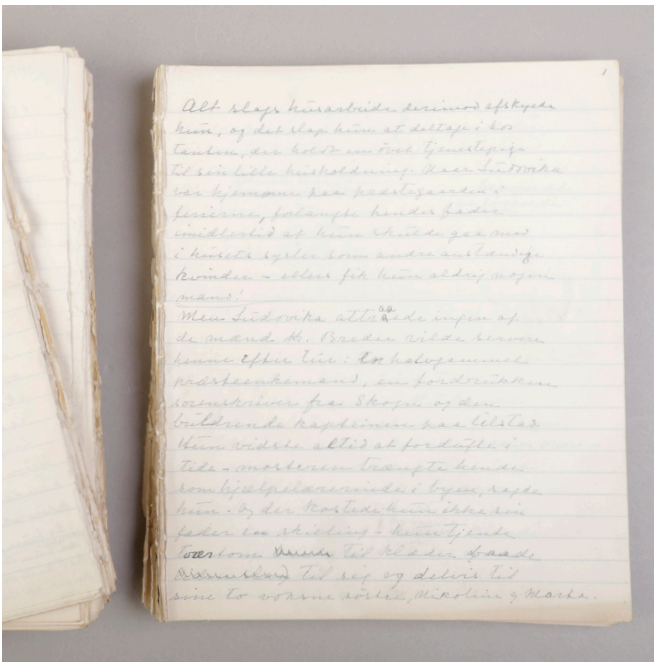 1
Alt slags husarbeide derimod afskyede
hun, og det slap hun at deltage i hos
tanten, der holdt en övet tjenestepige
til sin lille husholdning. Naar Ludovika
var hjemme paa præstegaarden i
ferierne, forlangte hendes fader
imidlertid at hun skulde gaa med
i husets sysler som andre anstændige
kvinder – ellers fik hun aldrig nogen
mand!
Men Ludovika attraaede ingen af
de mænd Hr. Breder vilde servere
henne efter tur: En halvgammel
præsteenkemand, en fordrukken
sorenskriver fra Skogn og den
buldrende kapteinen paa
Hun vidste altid at fordufte i
tide – mosteren trængte hende
som hjælpelærerinde i byen, sagde
hun – og der kostede hun ikke sin
fader en skilling – hun tjente
tværtom til klæder baade
til sig og delvis til
sine to voksne söstre, Nikoline og Marta.